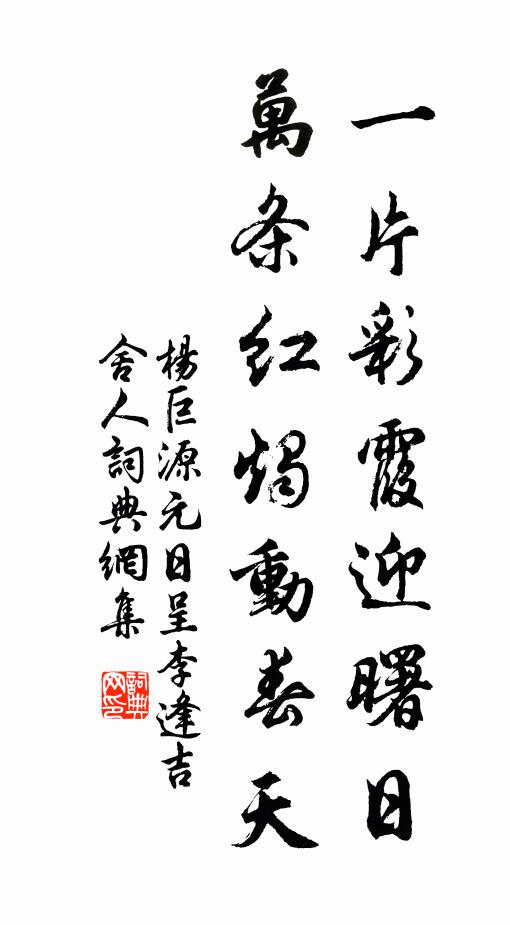 一片彩霞迎曙日
萬条紅燭動春天
楊巨源元日呈李逢吉
舍人詞典網集
詞典网印